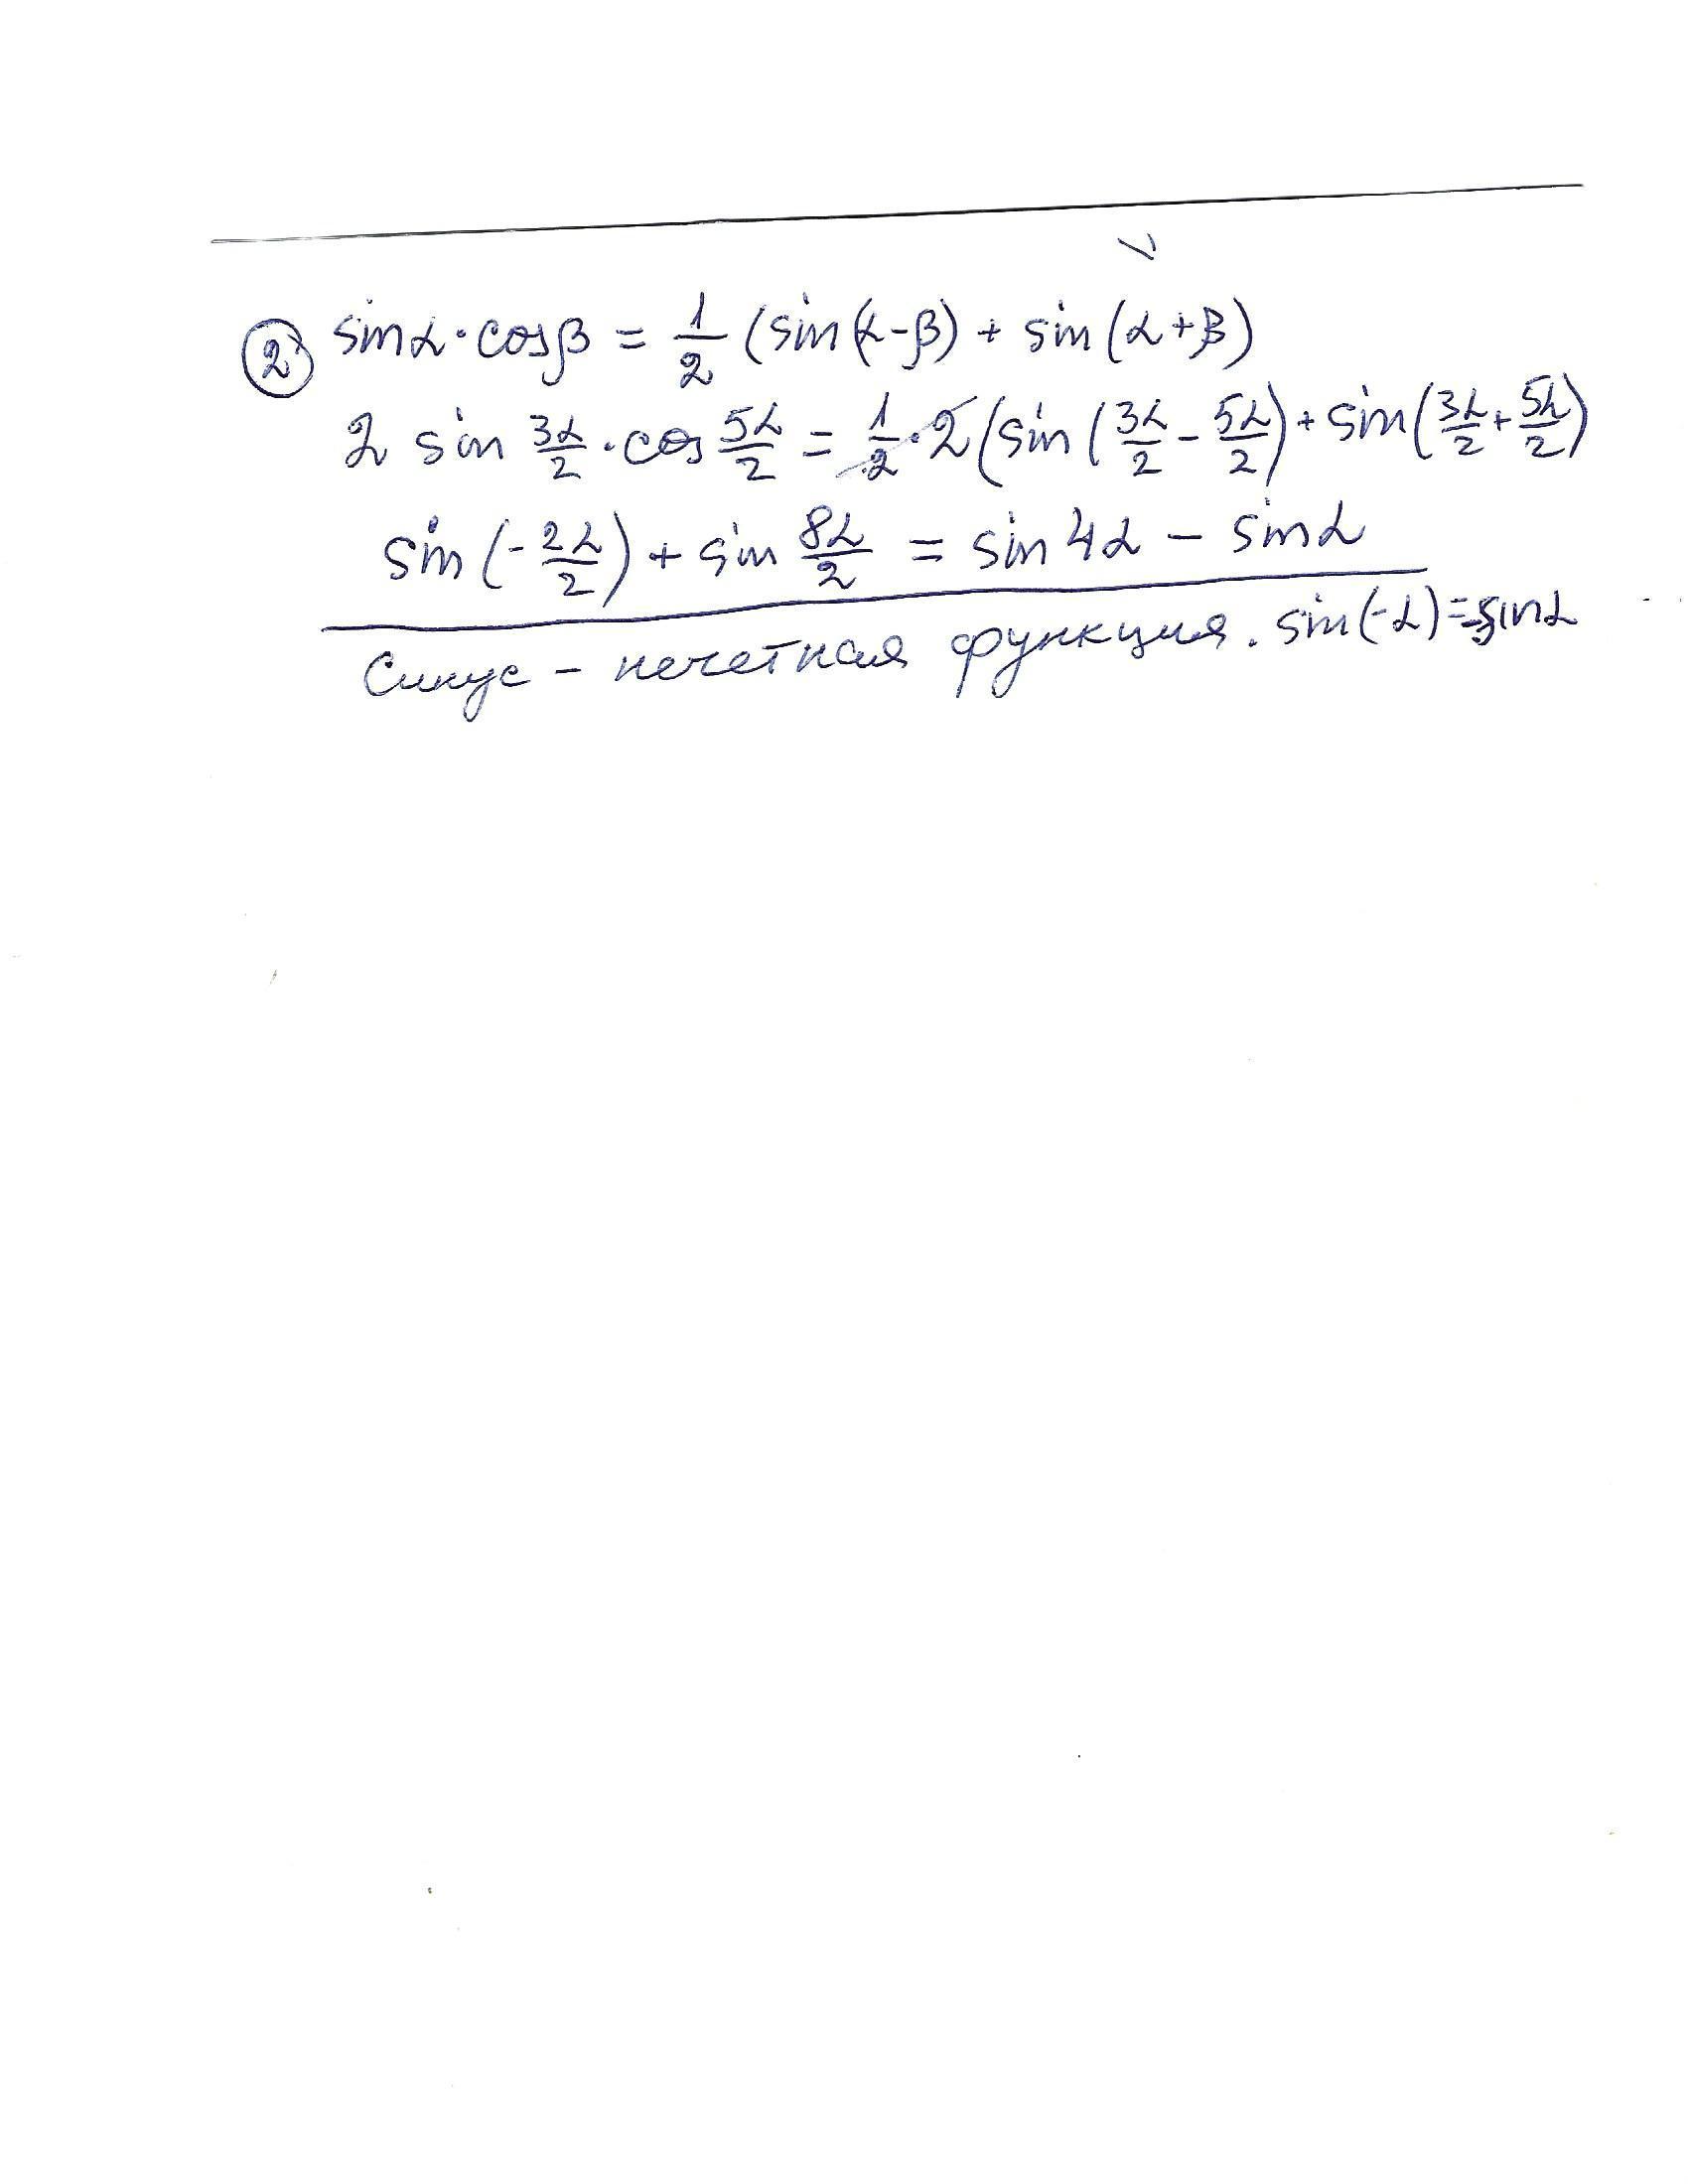 ② sinα·cosβ = 1/2 (sin(α-β) + sin(α+β)
2 sin 3α/2 · cos 5α/2 = 1/2·2(sin(3α/2 - 5α/2) + sin(3α/2 + 5α/2)
sin(-2α/2) + sin 8α/2 = sin4α - sinα
Синус - нечетная функция. sin(-α)=-sinα